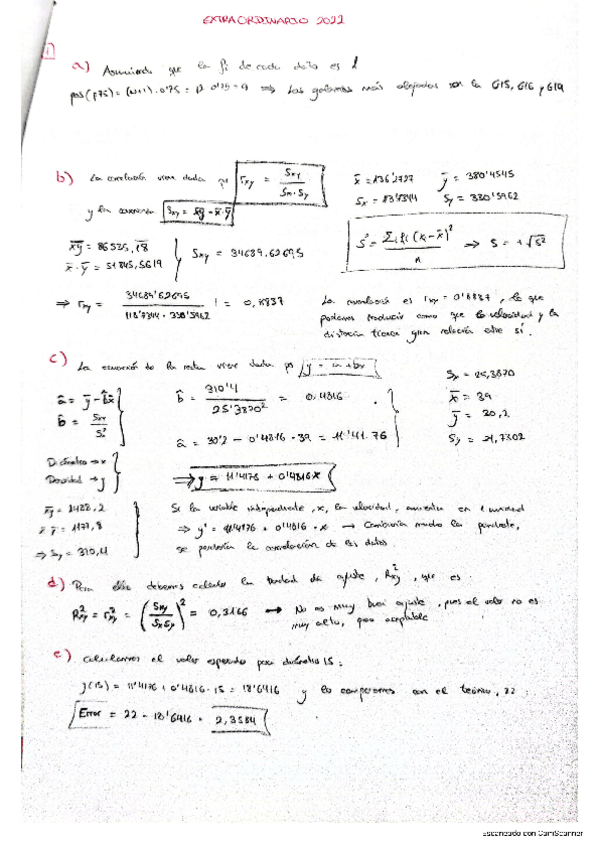 EXTRAORDINARIO 2022
1
a) Asumiendo que la fi de cada dato es 1
pos(p75) = (N+1)·0'75 = 12·0'75 = 9 ⇒ Las galaxias más alejadas son la G15, G16 y G19
b) La correlación viene dada por r_xy = S_xy / (S_x·S_y)
x̄ = 136'2727 ȳ = 380'4545
S_x = 118'7344 S_y = 330'5962
y la covarianza S_xy = x̄ȳ - x̄·ȳ
S² = Σ fi (xi - x̄)² / n ⇒ S = +√S²
x̄ȳ = 86535,18
x̄·ȳ = 51845,5619
S_xy = 34689,62695
⇒ r_xy = 34689'62695 / (118'7344 · 330'5962) = 0,8837
La correlación es r_xy = 0'8837, lo que
podemos traducir como que la velocidad y la
distancia tienen gran relación entre sí.
c) La ecuación de la recta viene dada por y = a + bx
â = ȳ - b̂x̄
b̂ = S_xy / S_x²
b̂ = 310'4 / 25'3870² = 0,4816
â = 30'2 - 0'4816·39 = 11'4176
S_x = 25,3870
x̄ = 39
ȳ = 30,2
S_y = 21,7302
Diámetro → x
Densidad → y
⇒ y = 11'4176 + 0'4816x
x̄ȳ = 1488,2
x̄·ȳ = 1177,8
⇒ S_xy = 310,4
Si la variable independiente, x, la velocidad, aumenta en 1 unidad
⇒ y' = 11'4176 + 0'4816·x → Cambiaría mucho la pendiente,
se perdería la correlación de los datos.
d) Para ello debemos calcular la bondad de ajuste, R²_xy, que es:
R²_xy = r²_xy = (S_xy / S_xS_y)² = 0,3166 → No es muy buen ajuste, pues el valor no es
muy alto, pero aceptable
e) Calculamos el valor esperado para diámetro 15:
y(15) = 11'4176 + 0'4816·15 = 18'6416 y lo comparamos con el teórico, 22:
Error = 22 - 18'6416 = 2,3584
Escaneado con CamScanner